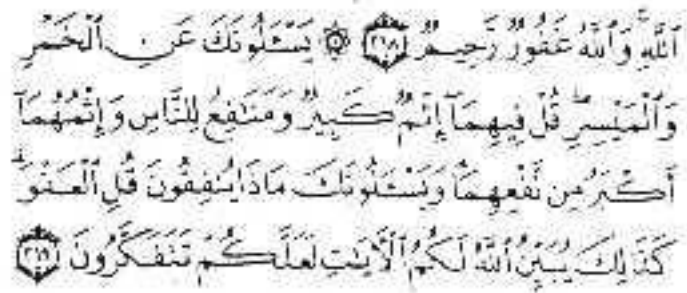 ٱللَّهِۚ وَٱللَّهُ غَفُورٌ رَّحِيمٌ ٢١٨ ۞ يَسْـَٔلُونَكَ عَنِ ٱلْخَمْرِ
وَٱلْمَيْسِرِۖ قُلْ فِيهِمَآ إِثْمٌ كَبِيرٌ وَمَنَٰفِعُ لِلنَّاسِ وَإِثْمُهُمَآ
أَكْبَرُ مِن نَّفْعِهِمَاۗ وَيَسْـَٔلُونَكَ مَاذَا يُنفِقُونَ قُلِ ٱلْعَفْوَۗ
كَذَٰلِكَ يُبَيِّنُ ٱللَّهُ لَكُمُ ٱلْـَٔايَٰتِ لَعَلَّكُمْ تَتَفَكَّرُونَ ٢١٩